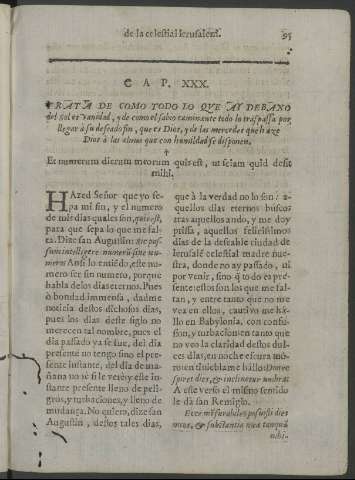 de la celestial Ierusalem. 95
CAP. XXX.
TRATA DE COMO TODO LO QVE AY DEBAXO
del sol es vanidad, y de como el sabio caminante todo lo traspassa por
llegar à su deseado fin, que es Dios, y de las mercedes que haze
Dios à las almas que con humildad se disponen.
✝
Et numerum dierum meorum quis est, ut sciam quid desit
mihi.
HAzed Señor que yo se-
pa mi fin, y el numero
de mis dias quales son, quis est,
para que sepa lo que me fal-
ta. Dize san Augustin: Sic pos-
sum intelligere numerũ sine nu-
mero: Ansi lo entiẽdo, este nu-
mero ser sin numero, porque
habla de los dias eternos. Pues
ò bondad immensa, dadme
noticia destos dichosos dias,
pues los dias deste siglo no
merecen tal nombre, pues el
dia passado ya se fue, del dia
presente no tengo sino el pre-
sente instante, del dia de ma-
ñana no sè si le verè; y este in-
stante presente lleno de peli-
gros, y turbaciones, y lleno de
mudança. No quiero, dize san
Augustin, destos tales dias,
que à la verdad no lo son: a-
quellos dias eternos busco:
tras aquellos ando, y me doy
prissa, aquellos felicissimos
dias de la deseable ciudad de
Ierusalẽ celestial madre nue-
stra, donde no ay passado, ni
por venir, sino q̃ todo es pre-
sente: estos son los que me fal-
tan, y entre tanto que no me
veo en ellos, cautivo me ha-
llo en Babylonia, con confu-
sion, y turbacion: en tanto que
no veo la claridad destos dul-
ces dias, en noche escura me
hallo: Donec
aspiret dies, & inclinetur umbræ:
A este verso el mismo sentido
le dà san Remigio.
Ecce mẽsurabiles posuisti dies
meos, & substantia mea tanquã
nihi-